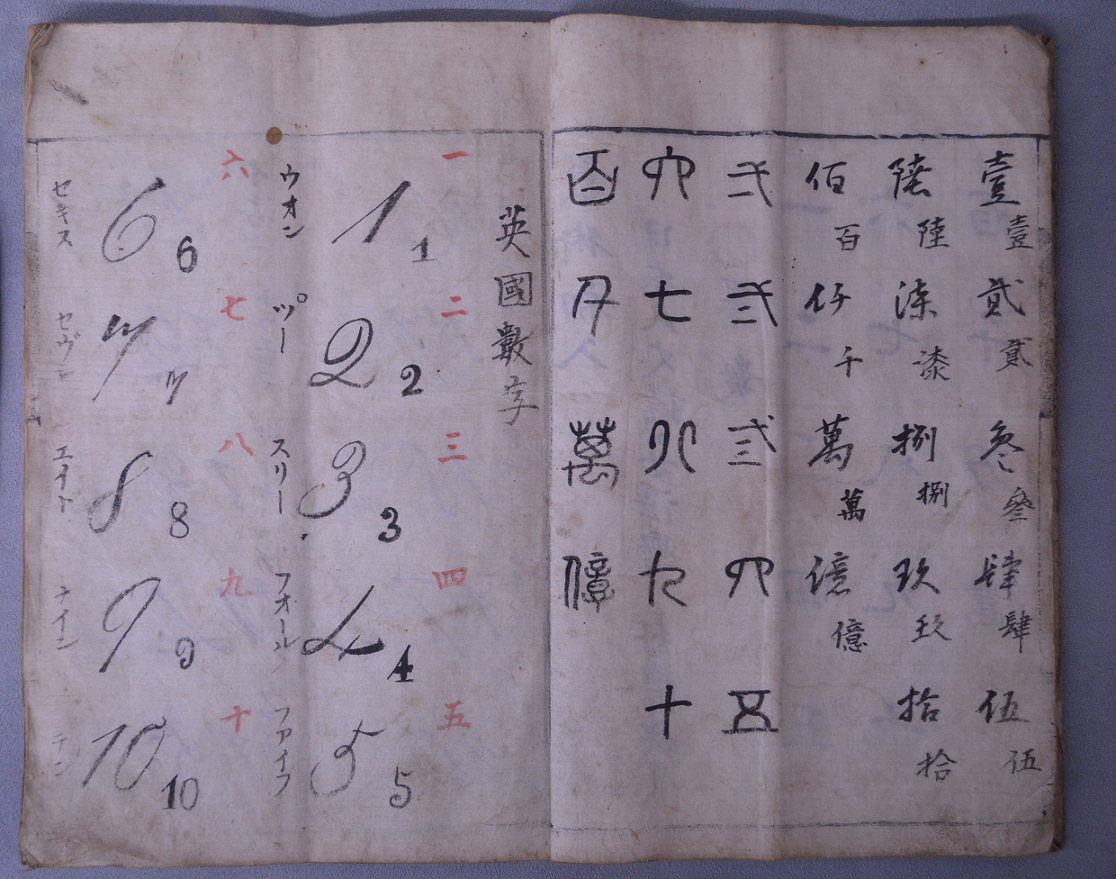 壹 壹 貳 貳 叄 叄 肆 肆 伍 伍
陸 陸 漆 漆 捌 捌 玖 玖 拾 拾
佰 百 仟 千 萬 萬 億 億
弌 弍 弎 四 五
六 七 八 九 十
百 千 萬 億
英國數字
一 二 三 四 五
1 1 2 2 3 3 4 4 5 5
ウオン ツ゚ー スリー フオール ファイフ
六 七 八 九 十
6 6 7 7 8 8 9 9 10 10
セキス セヴン エイト ナイン テン